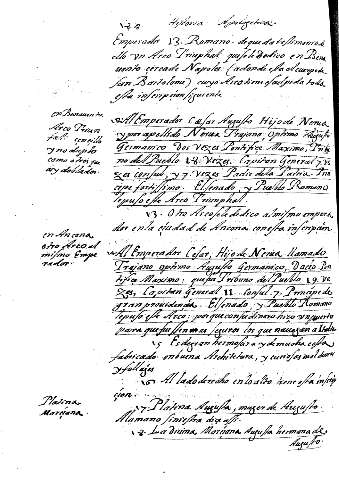 Historia Apologetica
Emperador 13. Romano. de que da testimonio
ello un Arco Triumphal que se le dedico en Bene
uento cerca de Napoles (adonde està el cuerpo de
San Bartolome) cuyo Arco tiene esculpida toda
esta inscripcion siguiente
en Beneuento
Arco Triun
fal
y no
como
Al Emperador Cæsar Augusto Hijo de Nerua
y por apellido Nerua Trajano Optimo Augusto
Germanico Dos vezes Pontifice Maximo, Tribu
no del Pueblo 18. Vezes. Capitan General 7. ve
zes consul, y 7. Vezes Padre de la Patria. Prin
cipe fortissimo. El senado, y Pueblo Romano
le puso este Arco Triumphal.
13. Otro Arco se le dedico al mismo empera
dor en la ciudad de Ancona con esta inscripcion
en Ancona
otro Arco al
mismo Empe
rador.
Al Emperador Cesar, Hijo de Nerua llamado
Trajano optimo Augusto Germanico, Dacio Pon
tifice Maximo; que fue Tribuno del Pueblo 19. ve
zes, Capitan General 11. Consul 7. Principe de
gran prouidencia. El senado, y Pueblo Romano
le puso este Arco: porque con su dinero hizo un puerto
para que fuessen mas seguros los que nauegan a Italia
15 Es de gran hermosura y de mucha costa
fabricado en buena Architectura, y curiosas molduras
y follajes
16 Al lado derecho en lo alto tiene esta inscrip
cion.
Platina
Marciana.
17. Platina Augusta, muger de Augusto.
Al a mano siniestra dize assi
18. La diuina Marciana Augusta hermana de
Augusto.